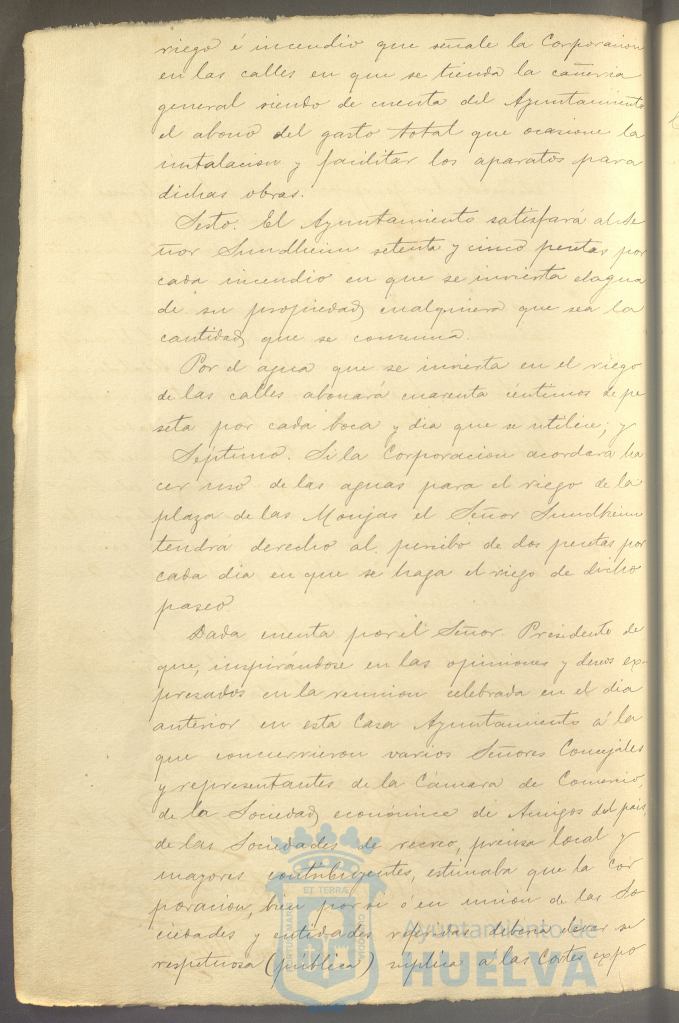 riego é incendio que señale la Corporacion
en las calles en que se tienda la cañeria
general siendo de cuenta del Ayuntamiento
el abono del gasto total que ocasione la
instalacion y facilitar los aparatos para
dichas obras.
Sesto. El Ayuntamiento satisfará al Se
ñor Sundheim setenta y cinco pesetas por
cada incendio en que se invierta el agua
de su propiedad cualquiera que sea la
cantidad que se consuma.
Por el agua que se invierta en el riego
de las calles abonará cuarenta céntimos de pe
seta por cada boca y dia que se utilice; y
Séptimo. Si la Corporacion acordara ha
cer uso de las aguas para el riego de la
plaza de las Monjas el Señor Sundheim
tendrá derecho al percibo de dos pesetas por
cada dia en que se haga el riego de dicho
paseo
Dada cuenta por el Señor Presidente de
que, inspirándose en las opiniones y deseos ex-
presados en la reunion celebrada en el dia
anterior en esta Casa Ayuntamiento á la
que concurrieron varios Señores Concejales
y representantes de la Cámara de Comercio,
de la Sociedad económica de Amigos del pais,
de las Sociedades de recreo, prensa local y
mayores contribuyentes, estimaba que la Cor
poracion, bien por sí ó en union de las So
ciedades y entidades referidas deberia elevar
respetuosa (pública) súplica á las Cortes expo
ET TERRÆ
Ayuntamiento de
HUELVA